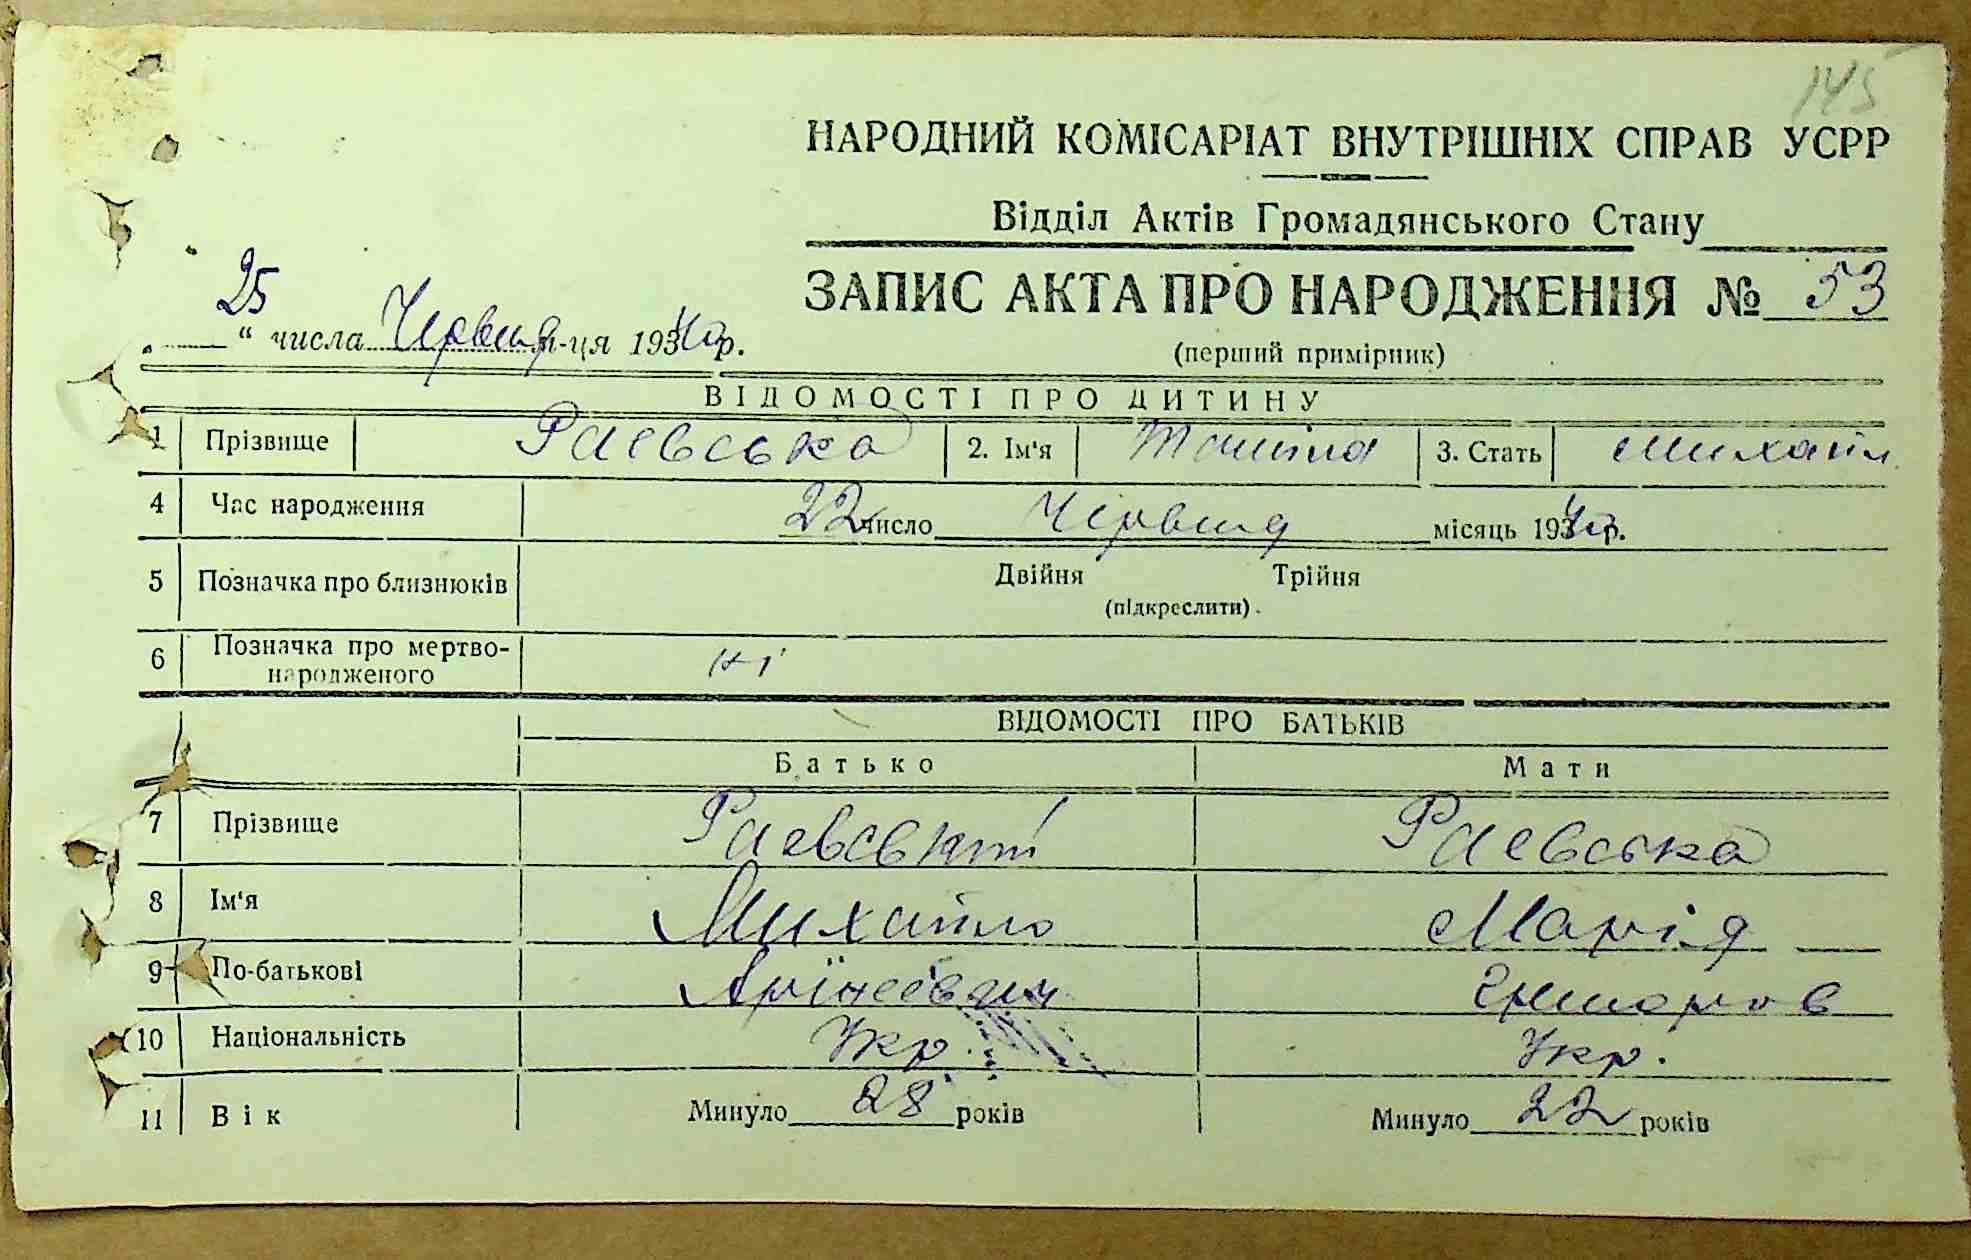 145
НАРОДНИЙ КОМІСАРІАТ ВНУТРІШНІХ СПРАВ УСРР
Відділ Актів Громадянського Стану
ЗАПИС АКТА ПРО НАРОДЖЕННЯ № 53
(перший примірник)
„25“ числа Червня м-ця 1940р.
ВІДОМОСТІ ПРО ДИТИНУ
1 Прізвище Раевська 2. Ім'я 3. Стать Михайл.
4 Час народження 22 число Червня місяць 1940р.
5 Позначка про близнюків Двійня Трійня
(підкреслити).
6 Позначка про мертво-
народженого ні
ВІДОМОСТІ ПРО БАТЬКІВ
Батько Мати
7 Прізвище Раевський Раевська
8 Ім'я Михайло Марія
9 По-батькові
10 Національність Укр. Укр.
11 Вік Минуло 28 років Минуло 22 років